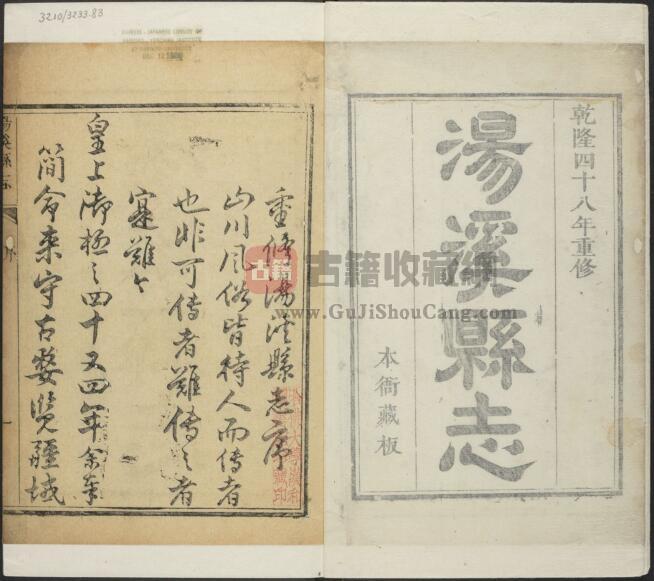 3210/3233.83
乾隆四十八年重修
湯溪縣志
本衙藏板
重修湯溪縣志序
山川風俗皆待人而傳者
也非可傳者難傳之者
寔難々
皇上御極之四十又四年余奉
簡命來守古婺覽疆域
古籍
古籍收藏
www.GuJiShouCang.com